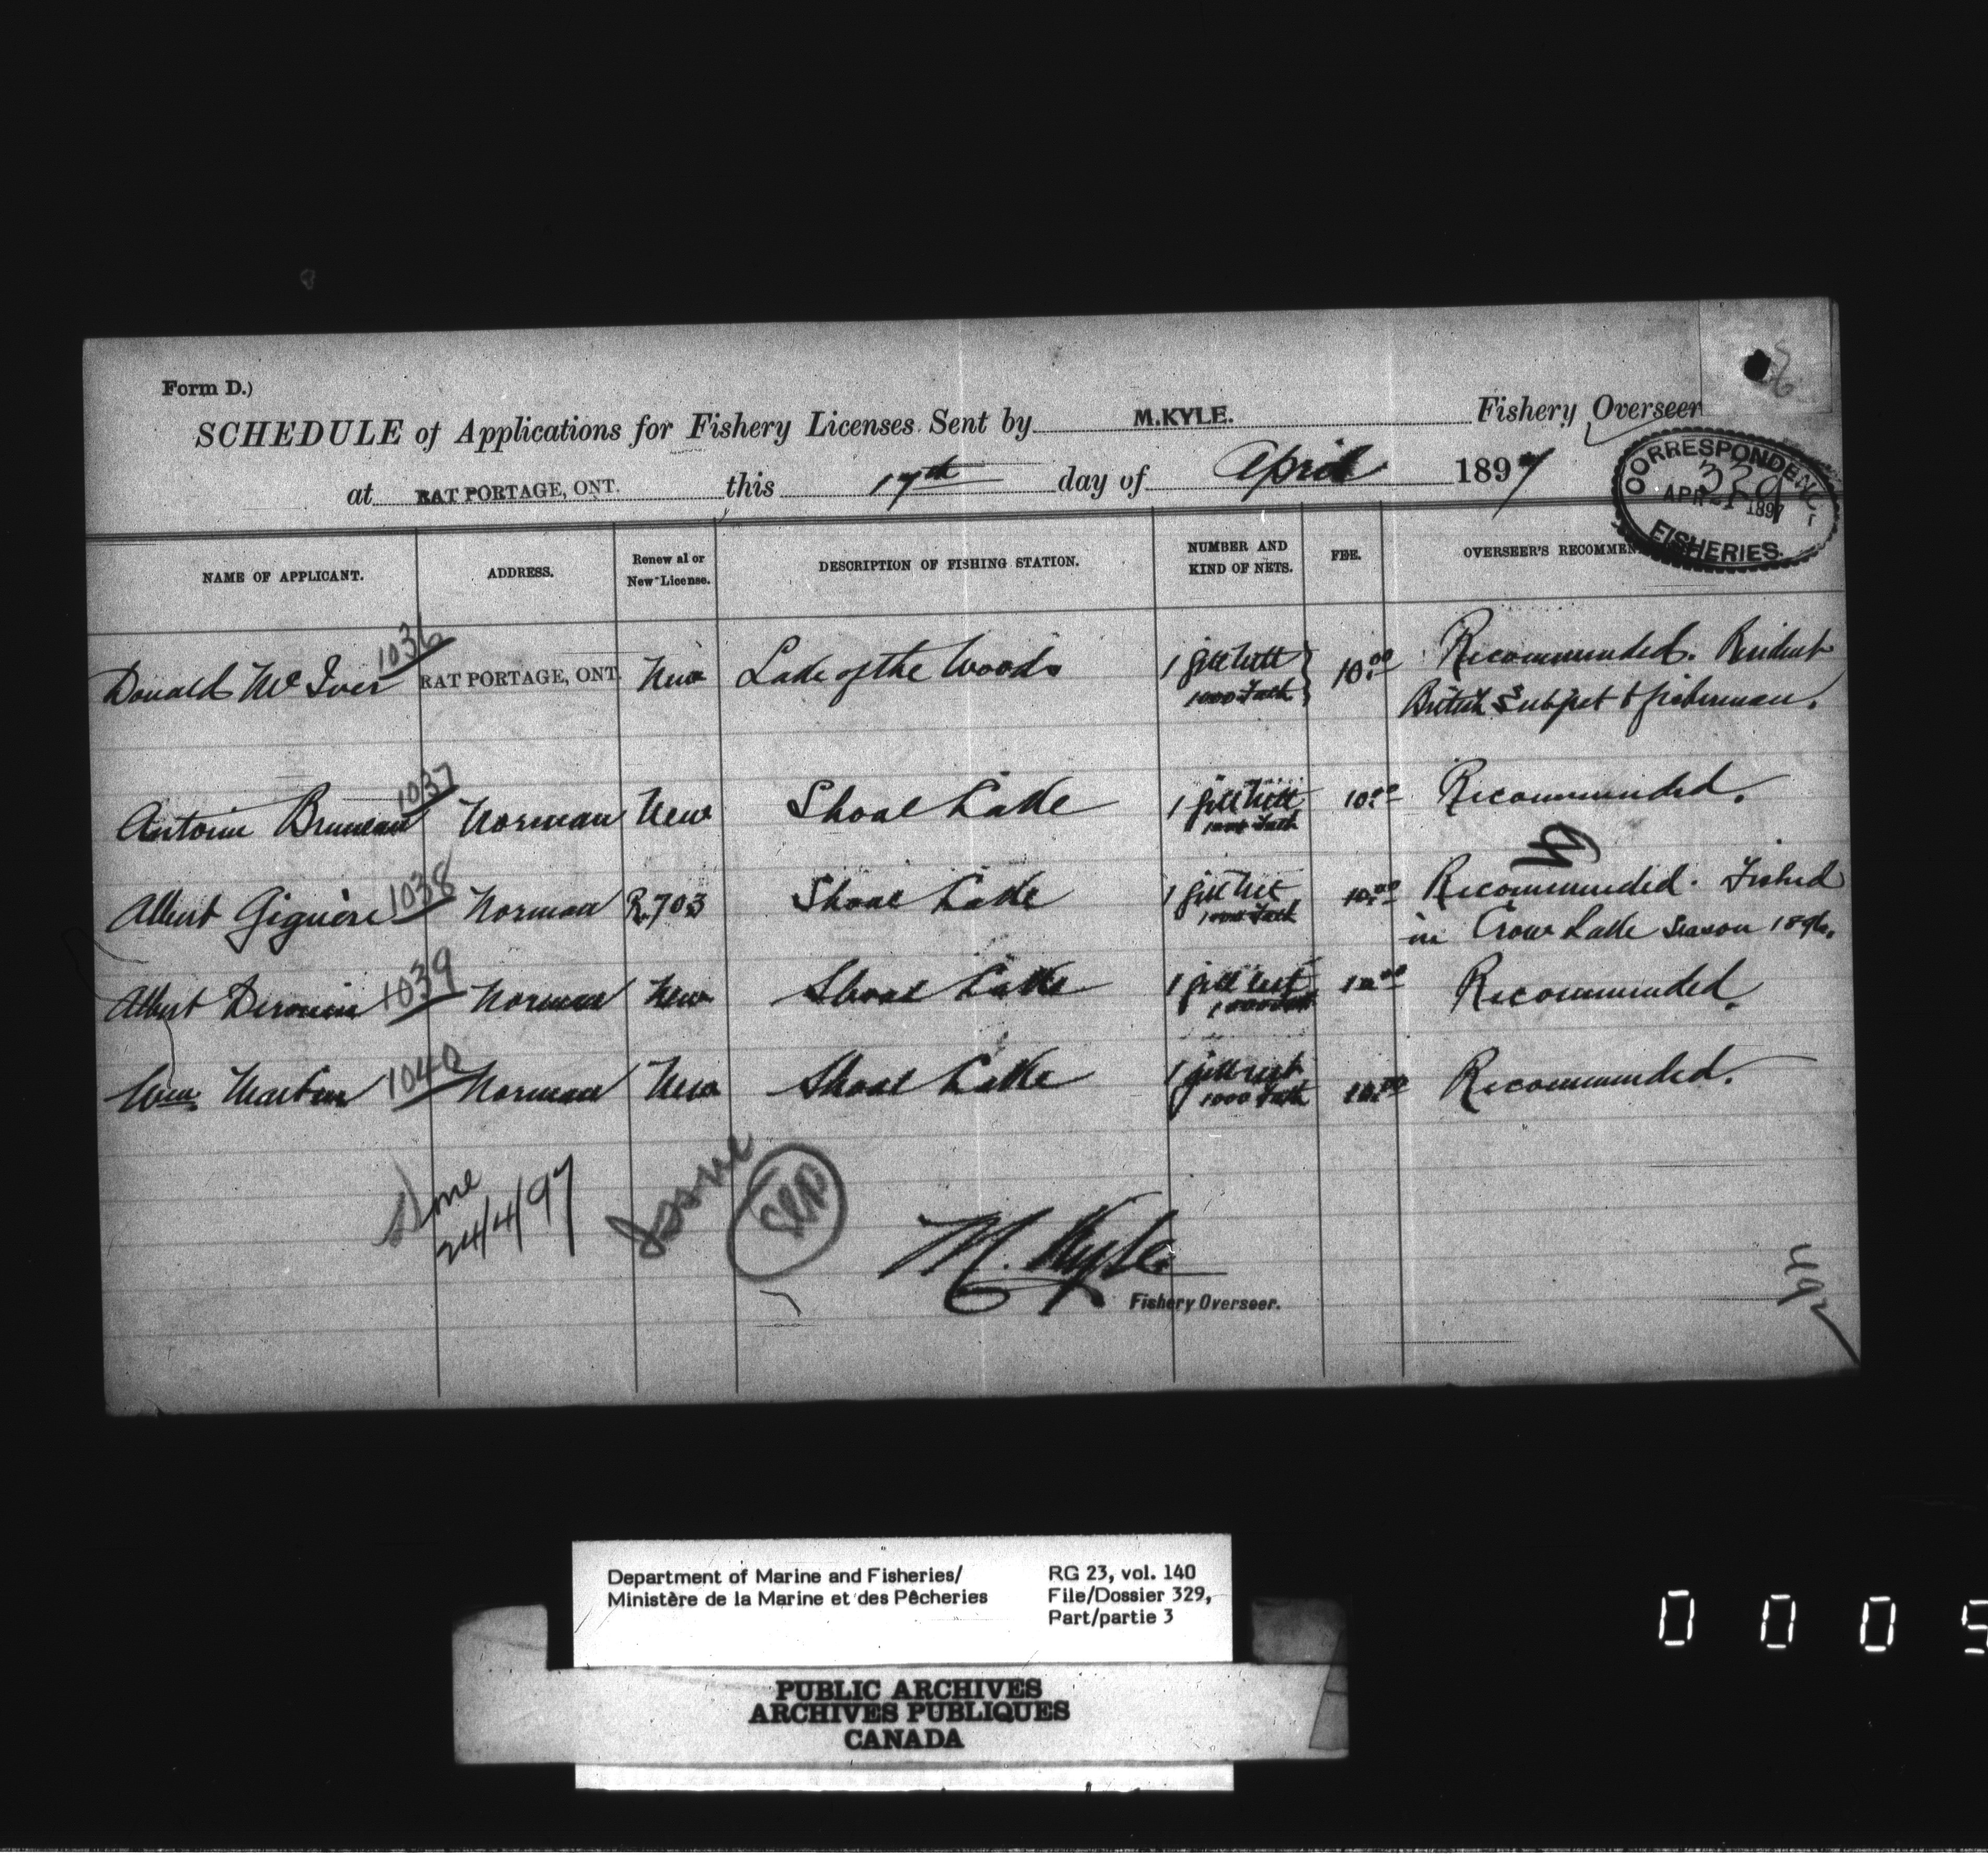 Form D.)
SCHEDULE of Applications for Fishery Licenses Sent by M.KYLE. Fishery Overseer
at RAT PORTAGE, ONT. this 17th day of April 1897
CORRESPONDENC
329
APR 21 1897
FISHERIES.
NAME OF APPLICANT. ADDRESS. Renewal or New License. DESCRIPTION OF FISHING STATION. NUMBER AND KIND OF NETS. FEE. OVERSEER'S RECOMMEN
Donald McIver 1036 RAT PORTAGE, ONT. New Lake of the Woods 1 gill nett 10.00 Recommended. Resident
1000 Fath British Subject & fisherman.
Antoine Bruneau 1037 Norman New Shoal Lake 1 gill nett 10.00 Recommended.
1000 Fath
Albert Giguère 1038 Norman R.703 Shoal Lake 1 gill net 10.00 Recommended. Fished
1000 Fath in Crow Lake Season 1896.
Albert 1039 Norman New Shoal Lake 1 gill net 10.00 Recommended.
1000 Fath
Wm Martin 1040 Norman New Shoal Lake 1 gill net 10.00 Recommended.
1000 Fath
Done
24/4/97
Issue
M. Kyle
Fishery Overseer.
Department of Marine and Fisheries/ RG 23, vol. 140
Ministère de la Marine et des Pêcheries File/Dossier 329,
Part/partie 3
PUBLIC ARCHIVES
ARCHIVES PUBLIQUES
CANADA
0 0 0 5